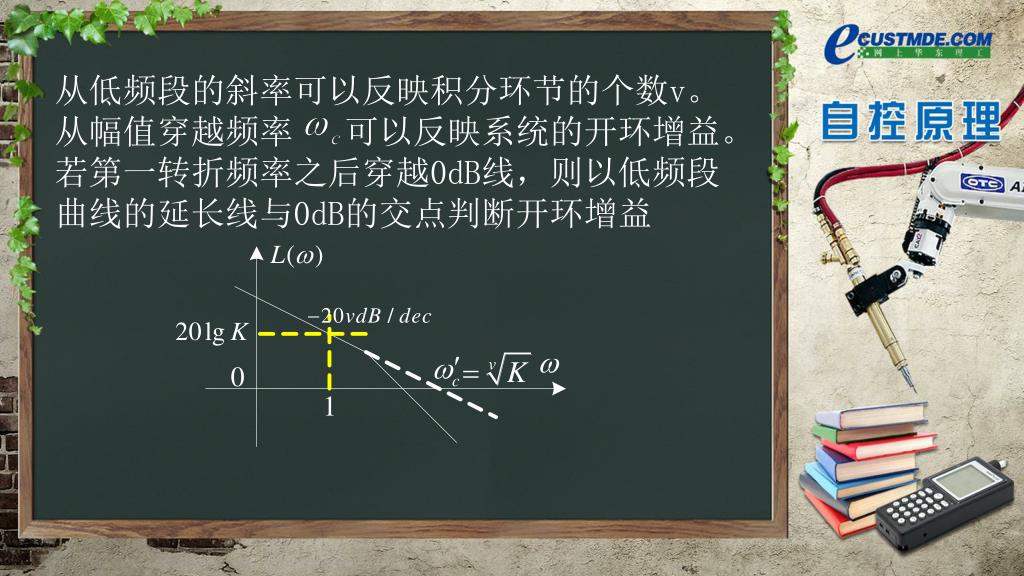 eCUSTMDE.COM
网上华东理工
自控原理
从低频段的斜率可以反映积分环节的个数v。
从幅值穿越频率 ω_c 可以反映系统的开环增益。
若第一转折频率之后穿越0dB线，则以低频段
曲线的延长线与0dB的交点判断开环增益
L(ω)
−20vdB / dec
20 lg K
0
ω′_c = ᵛ√K
ω
1
OTC